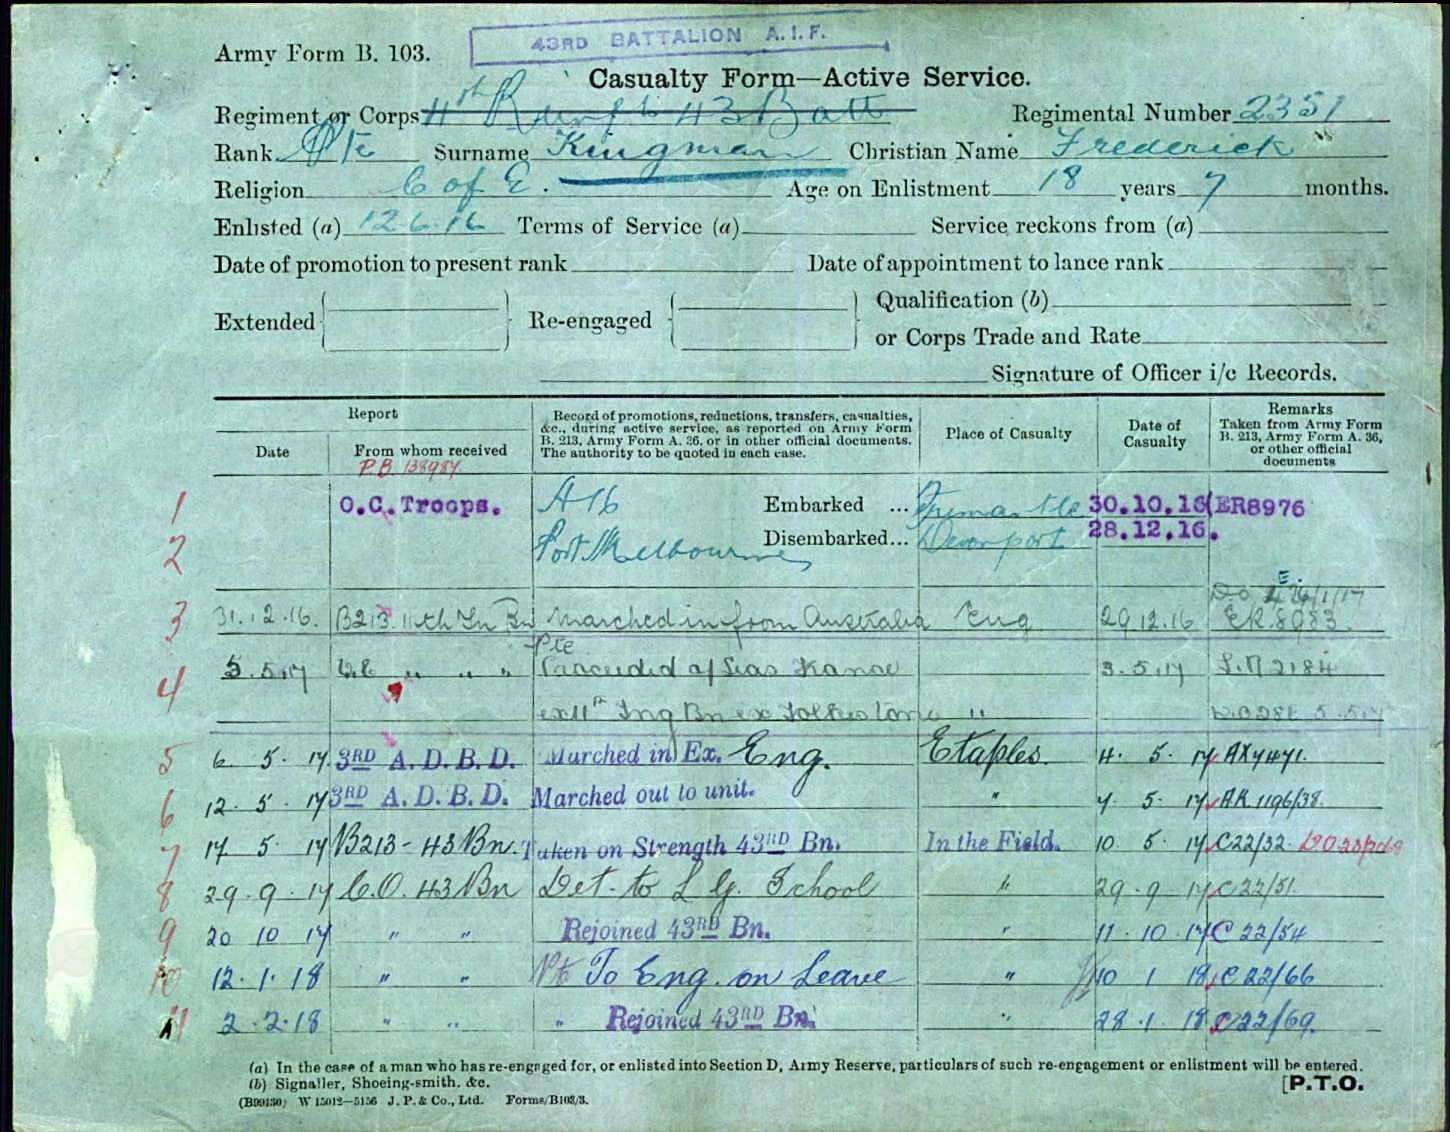 43RD BATTALION A.I.F.
Army Form B. 103.
Casualty Form—Active Service.
Regiment or Corps 4th Reinfts 43 Batt Regimental Number 2351
Rank Pte Surname Kingman Christian Name Frederick
Religion C of E. Age on Enlistment 18 years 7 months.
Enlisted (a) 12.6.16 Terms of Service (a) Service reckons from (a)
Date of promotion to present rank Date of appointment to lance rank
Extended Re-engaged Qualification (b)
or Corps Trade and Rate
Signature of Officer i/c Records.
Report Record of promotions, reductions, transfers, casualties, &c., during active service, as reported on Army Form B. 213, Army Form A. 36. or in other official documents. The authority to be quoted in each case. Place of Casualty Date of Casualty Remarks Taken from Army Form B. 213, Army Form A. 36, or other official documents
Date From whom received
P.B. 138984
1 O.C. Troops. A16 Embarked ... Fremantle 30.10.16 (ER8976
2 Port Melbourne Disembarked... Devonport 28.12.16.
3 31.12.16. B213 11th Tn Bn Marched in from Australia Eng 29.12.16 ER 8083
4 5.5.17 " " " Pte Proceeded o/seas France 3.5.17 2184
ex 11th Trng Bn ex Folkestone " 5.5.17
5 6 5 17 3RD A.D.B.D. Marched in Ex. Eng. Etaples. 4. 5. 17 AK4471.
6 12. 5. 17 3RD A.D.B.D. Marched out to unit. " 7 5. 17 AK 1196/38.
7 17 5 17 B213-43 Bn. Taken on Strength 43RD Bn. In the Field. 10 5. 17 C22/32.
8 29.9.17 C.O. 43 Bn Det. to L.G. School " 29.9.17 C 22/51
9 20 10 17 " " Rejoined 43RD Bn. " 11.10.17 C 22/54
10 12.1.18 " " Pte To Eng. on Leave " 10 1 18 C 22/66
11 2.2.18 " " " Rejoined 43RD Bn. " 28.1.18 C22/69.
(a) In the case of a man who has re-engaged for, or enlisted into Section D, Army Reserve, particulars of such re-engagement or enlistment will be entered.
(b) Signaller, Shoeing-smith. &c.
[P.T.O.
(B99130) W 15012—5156 J. P. & Co., Ltd. Forms/B103/3.